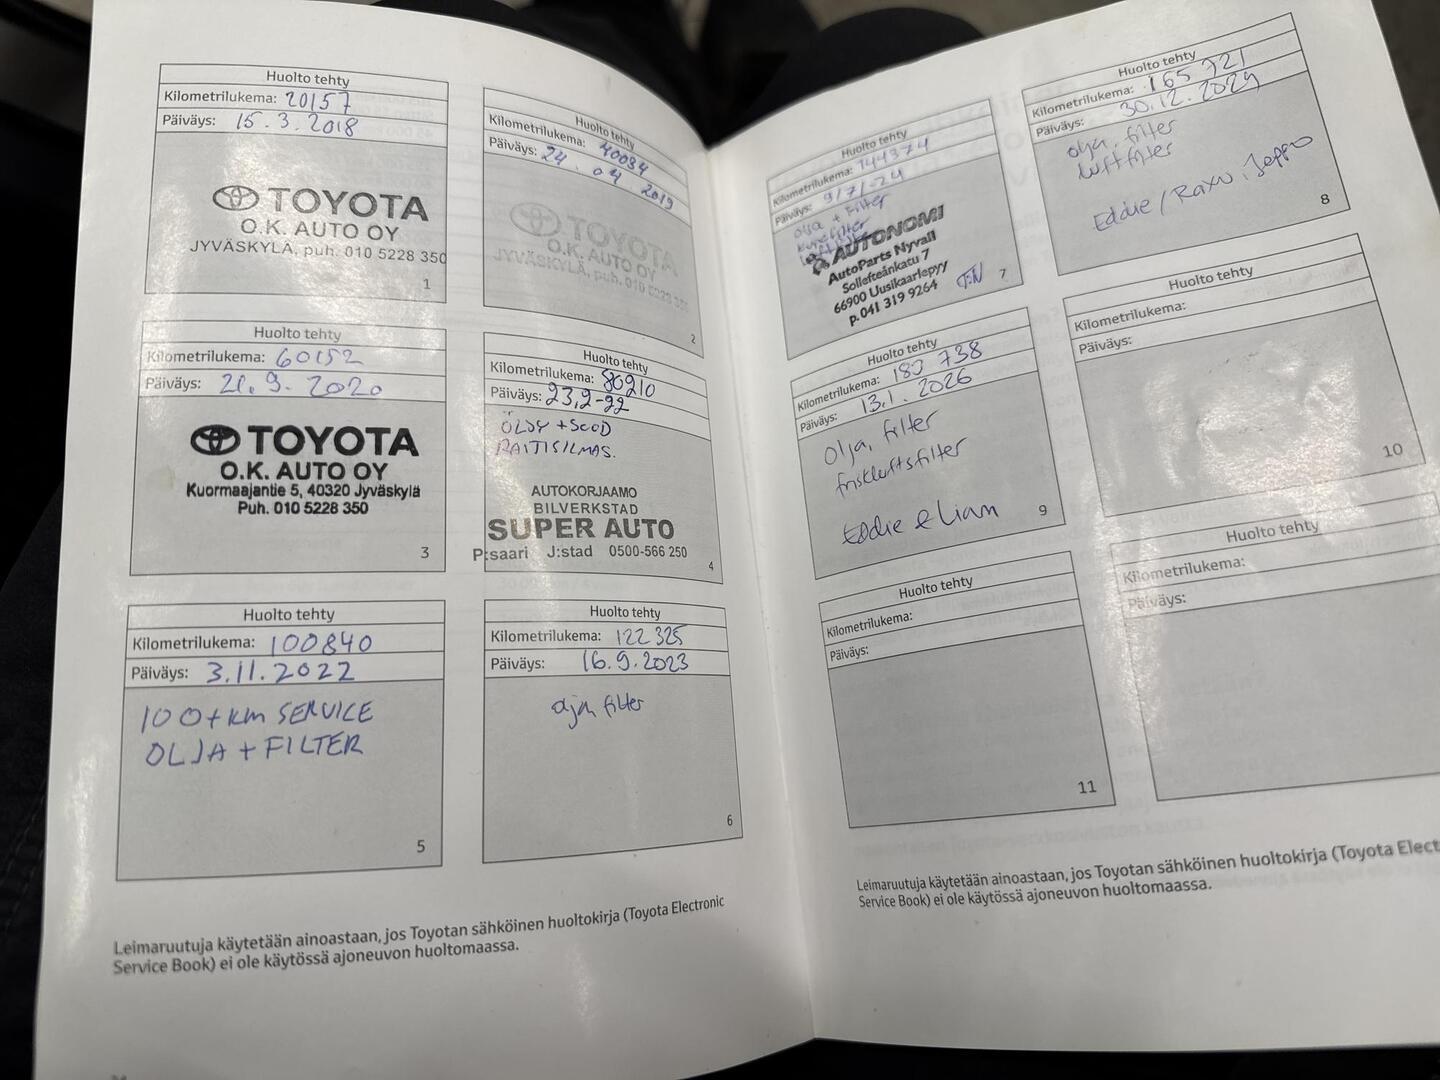 Huolto tehty
Kilometrilukema: 20157
Päiväys: 15.3.2018
TOYOTA
O.K. AUTO OY
JYVÄSKYLÄ, puh. 010 5228 350
1
Huolto tehty
Kilometrilukema: 40084
Päiväys: 24.04 2019
TOYOTA
O.K. AUTO OY
JYVÄSKYLÄ, puh. 010 5228 350
2
Huolto tehty
Kilometrilukema: 60152
Päiväys: 21.9.2020
TOYOTA
O.K. AUTO OY
Kuormaajantie 5, 40320 Jyväskylä
Puh. 010 5228 350
3
Huolto tehty
Kilometrilukema: 80210
Päiväys: 23,2-22
ÖLJY + SUOD
RAITISILMAS.
AUTOKORJAAMO
BILVERKSTAD
SUPER AUTO
P:saari J:stad 0500-566 250
4
Huolto tehty
Kilometrilukema: 100840
Päiväys: 3.11.2022
100+km SERVICE
OLJA + FILTER
5
Huolto tehty
Kilometrilukema: 122 325
Päiväys: 16.9.2023
olja, filter
6
Leimaruutuja käytetään ainoastaan, jos Toyotan sähköinen huoltokirja (Toyota Electronic
Service Book) ei ole käytössä ajoneuvon huoltomaassa.
Huolto tehty
Kilometrilukema: 144374
Päiväys: 9/7/-24
olja + filter
AUTONOMI
AutoParts Nyvall
Sollefteånkatu 7
66900 Uusikaarlepyy
p. 041 319 9264
7
Huolto tehty
Kilometrilukema: 165 721
Päiväys: 30.12.2024
olja, filter
luftfilter
Eddie / Raxo, Jeppo
8
Huolto tehty
Kilometrilukema: 183 738
Päiväys: 13.1.2026
olja, filter
friskluftsfilter
Eddie & Liam
9
Huolto tehty
Kilometrilukema:
Päiväys:
10
Huolto tehty
Kilometrilukema:
Päiväys:
11
Huolto tehty
Kilometrilukema:
Päiväys:
Leimaruutuja käytetään ainoastaan, jos Toyotan sähköinen huoltokirja (Toyota Elect
Service Book) ei ole käytössä ajoneuvon huoltomaassa.